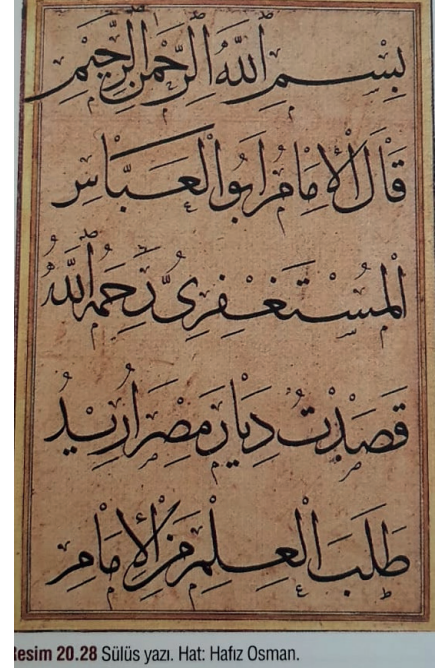 بِسْمِ اللَّهِ الرَّحْمٰنِ الرَّحِيمِ
قَالَ الْإِمَامُ أَبُو الْعَبَّاسِ
الْمُسْتَغْفِرِىُّ رَحِمَهُ اللَّهُ
قَصَدْتُ دِيَارَ مِصْرَ أُرِيدُ
طَلَبَ الْعِلْمِ مِنَ الْإِمَامِ
Resim 20.28 Sülüs yazı. Hat: Hafız Osman.